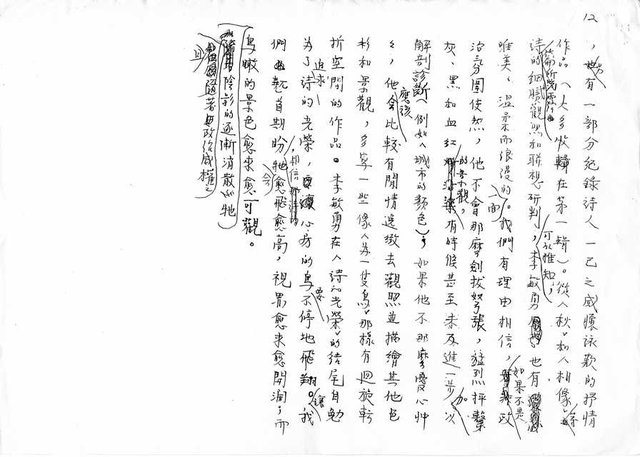 12
，也有一部分紀錄詩人一己之感懷詠歎的抒情
作品（大多收輯在第一輯）。從〈秋〉和〈相像〉等
詩的細膩觀照和聯想研判，可以推知，李敏勇也有
唯美、溫柔而浪漫的一面。我們有理由相信，如果不是政
治氛圍使然，他不會那麼劍拔弩張，猛烈抨擊
灰、黑和血紅的景觀，有時候甚至未及進一步加以
解剖診斷（例如〈城市的顏色〉）；如果他不那麼憂心忡
忡，他應該會比較有閒情逸緻去觀照並描繪其他色
彩和景觀，多寫一些像〈一隻鳥〉那樣有迴旋轉
折空間的作品。李敏勇在〈詩的光榮〉的結尾自勉
為了追求詩的光榮，要心房的鳥不停地飛翔。讓我
們也期盼相信牠愈飛愈高，視界愈來愈開闊，而
鳥瞰的景色愈來愈可觀。
陰影的逐漸消散，牠
且隨著政治威權